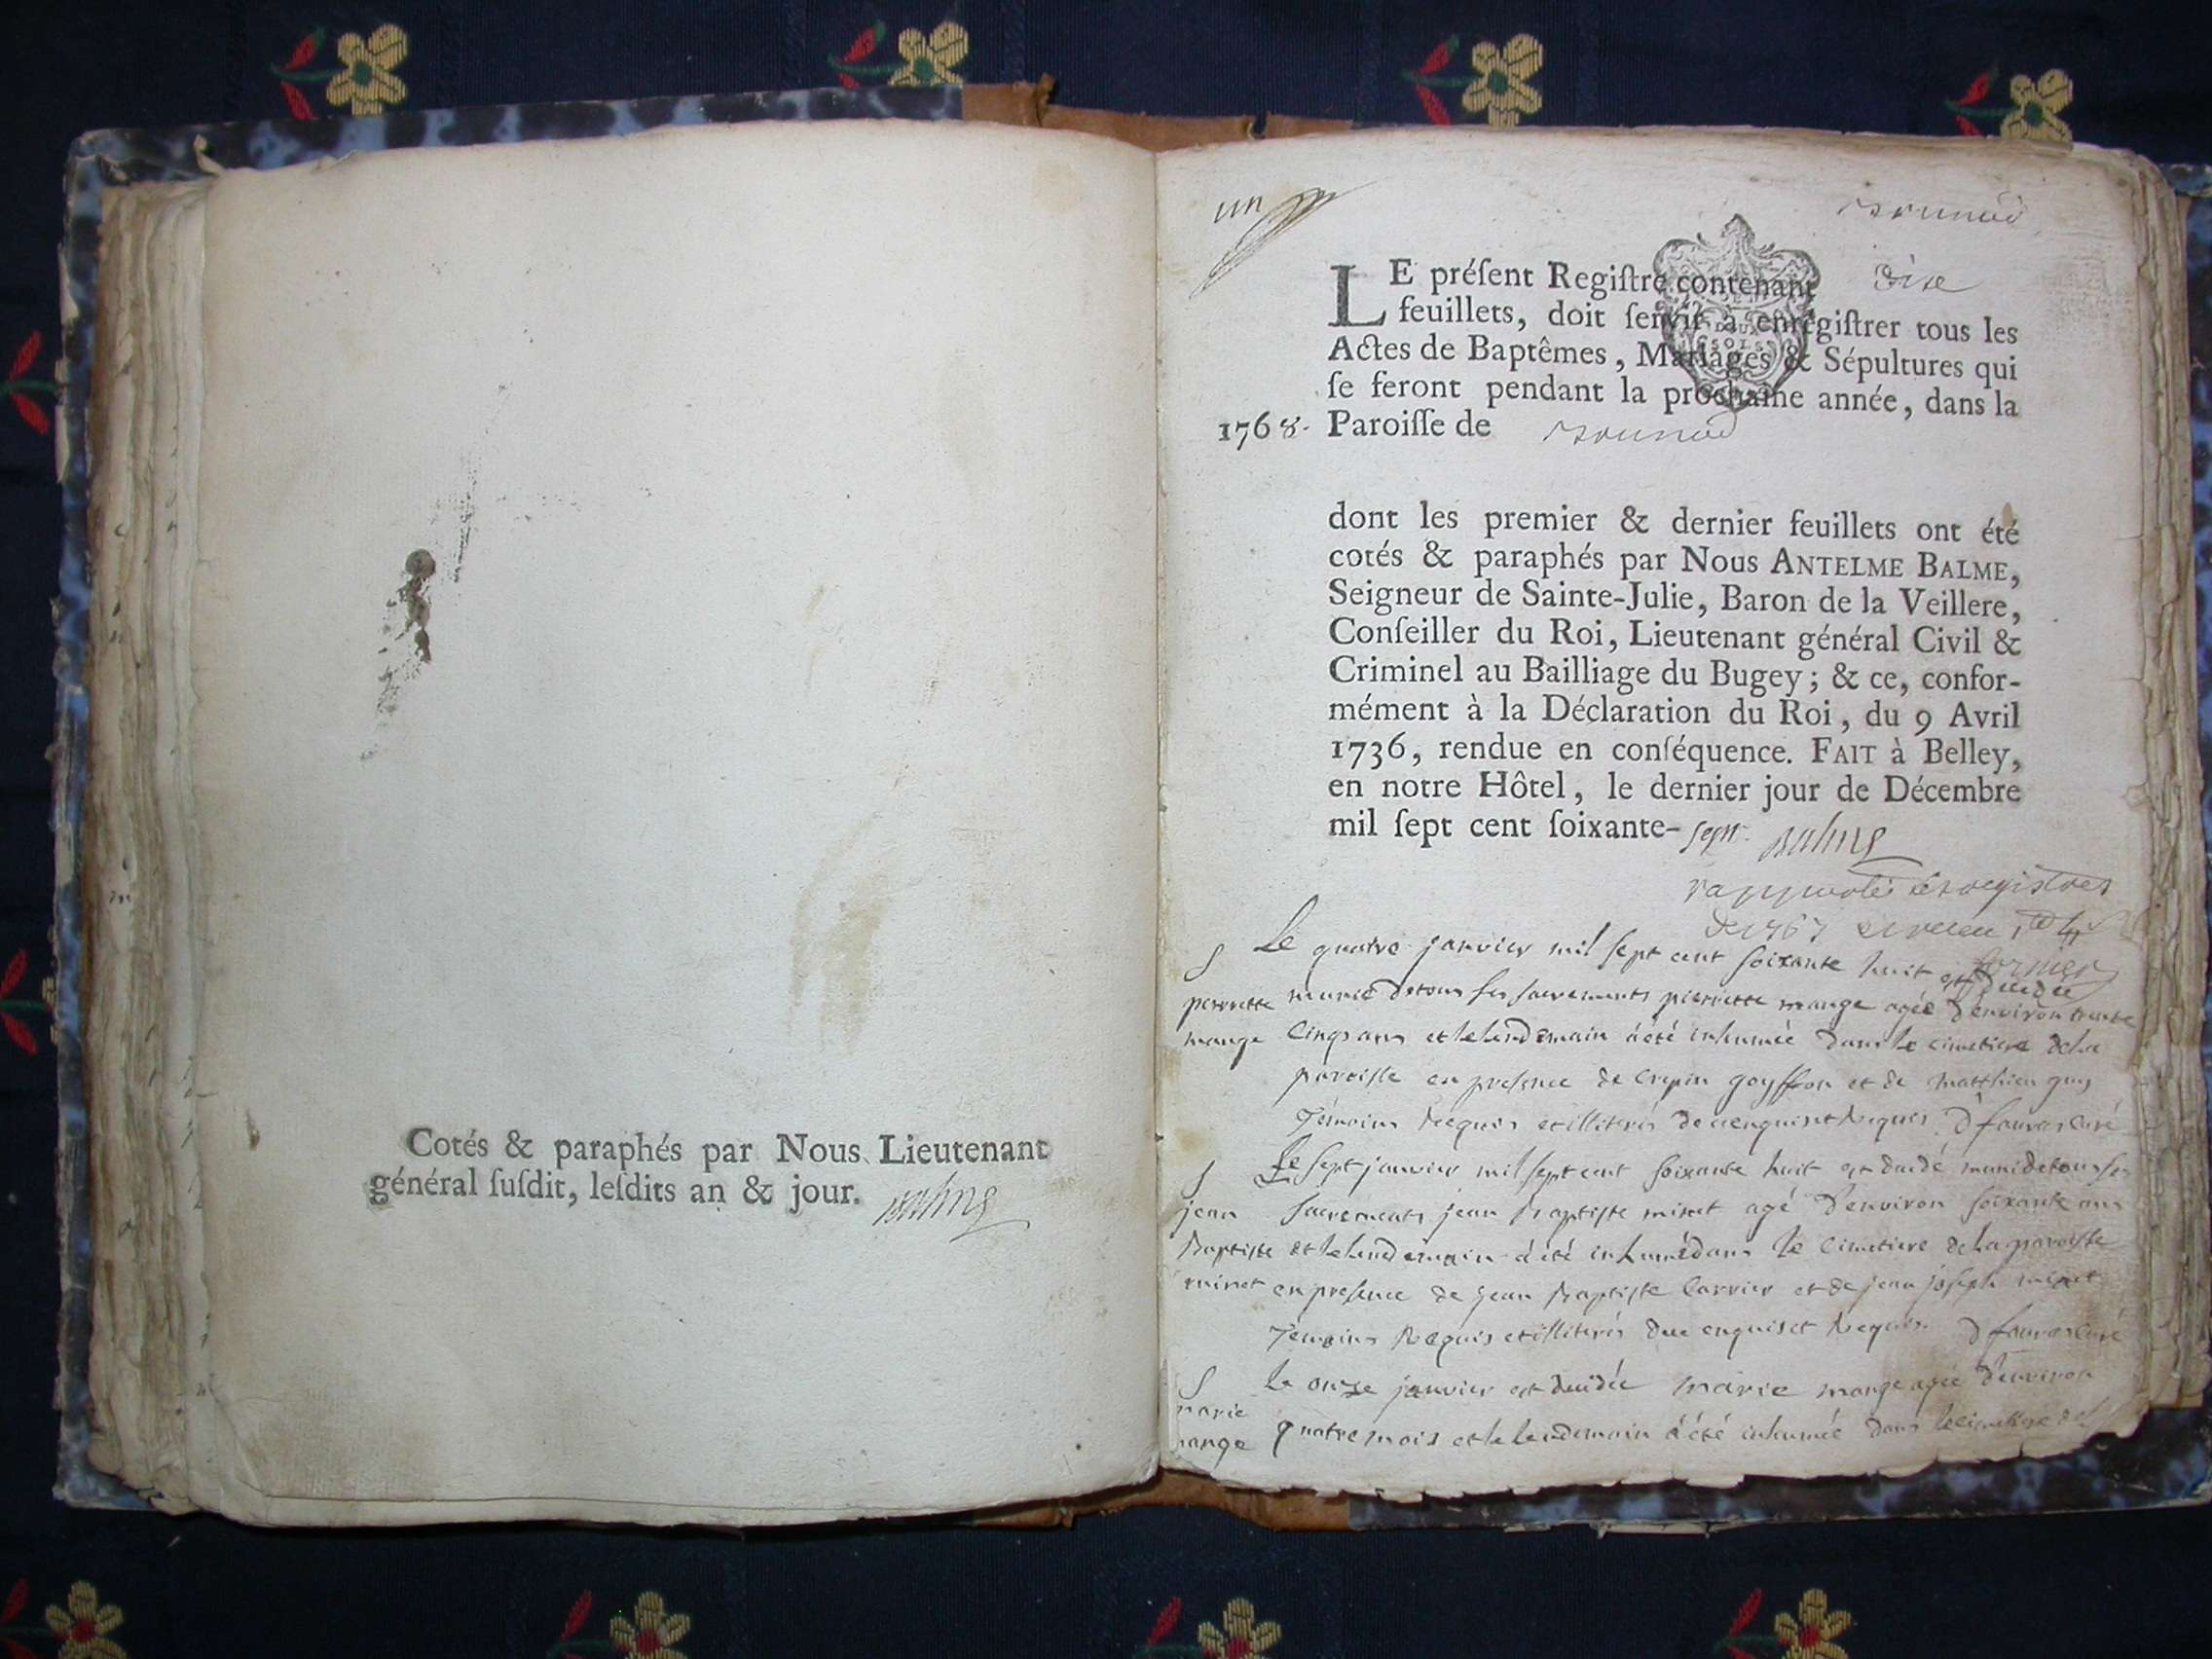 Cotés & paraphés par Nous Lieutenant
général ſuſdit, leſdits an & jour. Balme
un
LE préſent Regiſtre contenant dixe
feuillets, doit ſervir à enrégiſtrer tous les
Actes de Baptêmes, Mariages & Sépultures qui
ſe feront pendant la prochaine année, dans la
1768. Paroiſſe de
dont les premier & dernier feuillets ont été
cotés & paraphés par Nous ANTELME BALME,
Seigneur de Sainte-Julie, Baron de la Veillere,
Conſeiller du Roi, Lieutenant général Civil &
Criminel au Bailliage du Bugey; & ce, confor-
mément à la Déclaration du Roi, du 9 Avril
1736, rendue en conſéquence. FAIT à Belley,
en notre Hôtel, le dernier jour de Décembre
mil ſept cent ſoixante-ſept. Balme
rapporté les registres
de 1767
S Le quatre janvier mil sept cent soixante huit est decedée
pierrette munie de tous ses sacrements pierrette mange agée d'environ trente
mange cinq ans et le lendemain a été inhumée dans le cimetiere de la
paroisse en presence de crepin goyffon et de matthieu guy
Temoins Requis et illiterés de ce enquis et Requis D favre curé
S Le sept janvier mil sept cent soixante huit est decedé muni de tous ses
jean sacrements jean Baptiste minet agé d'environ soixante ans
Baptiste et le lendemain a été inhumé dans le cimetiere de la paroisse
minet en presence de jean Baptiste Carrier et de jean joseph minet
Temoins Requis et illiterés de ce enquis et Requis D favre curé
S Le onze janvier est decedée marie mange agée d'environ
marie
mange quatre mois et le lendemain a été inhumée dans le cimetiere de l